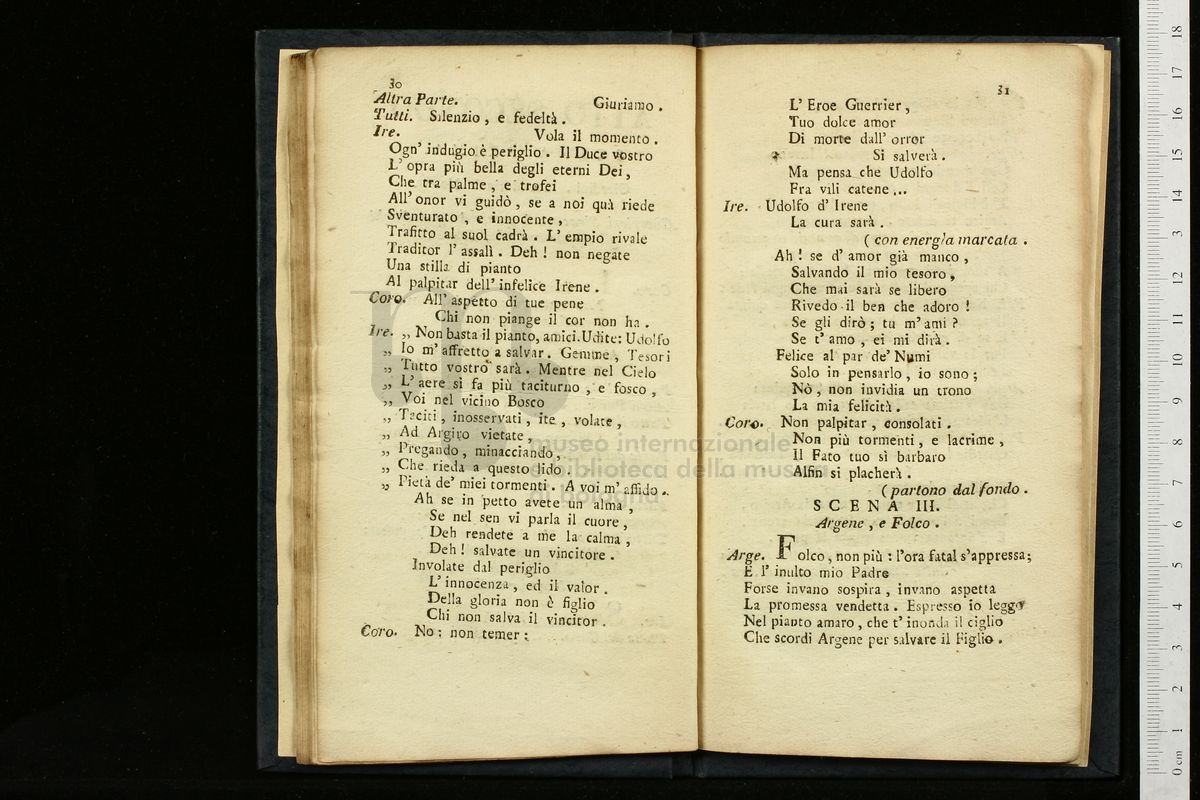 30
Altra Parte. Giuriamo .
Tutti. Silenzio , e fedeltà .
Ire. Vola il momento .
Ogn' indugio è periglio . Il Duce vostro
L' opra più bella degli eterni Dei ,
Che tra palme , e trofei
All' onor vi guidò , se a noi quà riede
Sventurato , e innocente ,
Trafitto al suol cadrà . L' empio rivale
Traditor l' assalì . Deh ! non negate
Una stilla di pianto
Al palpitar dell' infelice Irene .
Coro. All' aspetto di tue pene
Chi non piange il cor non ha .
Ire. „ Non basta il pianto, amici. Udite: Udolfo
„ Io m' affretto a salvar . Gemme , Tesori
„ Tutto vostro sarà . Mentre nel Cielo
„ L' aere si fa più taciturno , e fosco ,
„ Voi nel vicino Bosco
„ Taciti , inosservati , ite , volate ,
„ Ad Argiro vietate ,
„ Pregando , minacciando ,
„ Che rieda a questo lido .
„ Pietà de' miei tormenti . A voi m' affido .
Ah se in petto avete un alma ,
Se nel sen vi parla il cuore ,
Deh rendete a me la calma ,
Deh ! salvate un vincitore .
Involate dal periglio
L' innocenza , ed il valor .
Della gloria non è figlio
Chi non salva il vincitor .
Coro. No : non temer :
31
L' Eroe Guerrier ,
Tuo dolce amor
Di morte dall' orror
Si salverà .
Ma pensa che Udolfo
Fra vili catene ...
Ire. Udolfo d' Irene
La cura sarà .
( con energia marcata .
Ah ! se d' amor già manco ,
Salvando il mio tesoro ,
Che mai sarà se libero
Rivedo il ben che adoro !
Se gli dirò ; tu m' ami ?
Se t' amo , ei mi dirà .
Felice al par de' Numi
Solo in pensarlo , io sono ;
Nò , non invidia un trono
La mia felicità .
Coro. Non palpitar , consolati .
Non più tormenti , e lacrime ,
Il Fato tuo sì barbaro
Alfin si placherà .
( partono dal fondo .
SCENA III.
Argene , e Folco .
Arge. Folco, non più : l'ora fatal s'appressa;
E l' inulto mio Padre
Forse invano sospira , invano aspetta
La promessa vendetta . Espresso io leggo
Nel pianto amaro , che t' inonda il ciglio
Che scordi Argene per salvare il Figlio .
museo internazionale
e biblioteca della musica
di bologna
0 cm 1 2 3 4 5 6 7 8 9 10 11 12 13 14 15 16 17 18